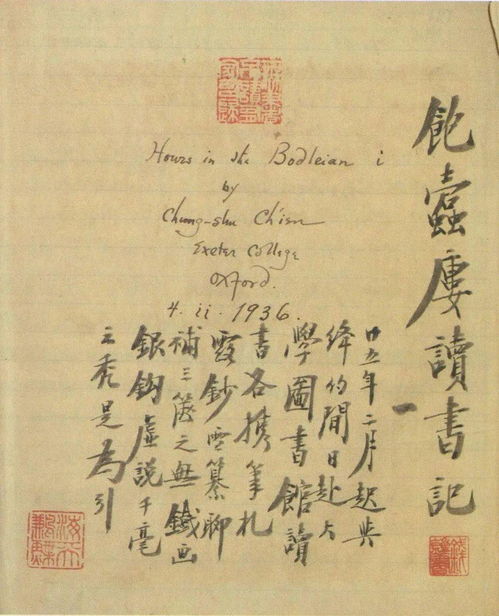 飽蠹廔讀書記
一
Hours in the Bodleian i
by
Chung-shu Ch'ien
Exeter College
Oxford.
4. ii. 1936.
廿五年二月起與
絳約間日赴大
學圖書館讀
書各攜筆札
露鈔雪纂聊
補三篋之無鐵畫
銀鉤虛說千毫
之禿是為引